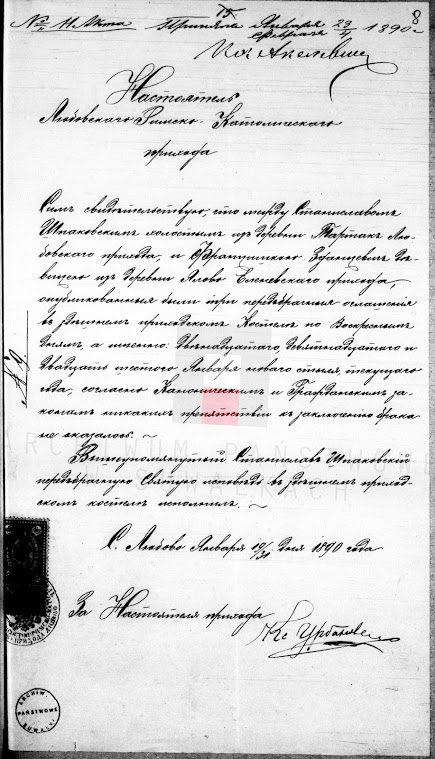 № 11 Акта
15
8
Принята Января 23/4 1890 г.
Февраля
Настоятель
Любовскаго Римско-Католическаго
прихода
Симъ свидѣтельствую, что между Станиславомъ
Шпаковскимъ холостымъ изъ деревни Тартакъ Лю-
бовскаго прихода, и Францишкою
изъ деревни прихода,
опубликованныя были три передбрачныя оглашенія
въ здѣшнемъ приходскомъ Костелѣ по Воскреснымъ
днямъ, а именно: двѣнадцатаго, девятнадцатаго и
двадцать шестого Января новаго стиля, текущаго
года, согласно Каноническимъ и Гражданскимъ за-
конамъ никакихъ препятствій къ заключенію брака
не оказалось. ~
Вышеупомянутый Станиславъ Шпаковскій
передбрачную Святую исповѣдь въ здѣшнемъ приход-
скомъ костелѣ исполнилъ. ~
С. Любово Января 19/31 дня 1890 года
За Настоятеля прихода
Кс Урбано
№ 9
ARCHIWUM PAŃSTWOWE
W SUWAŁKACH
ARCHIW.
PAŃSTWOWE
SUWAŁK.